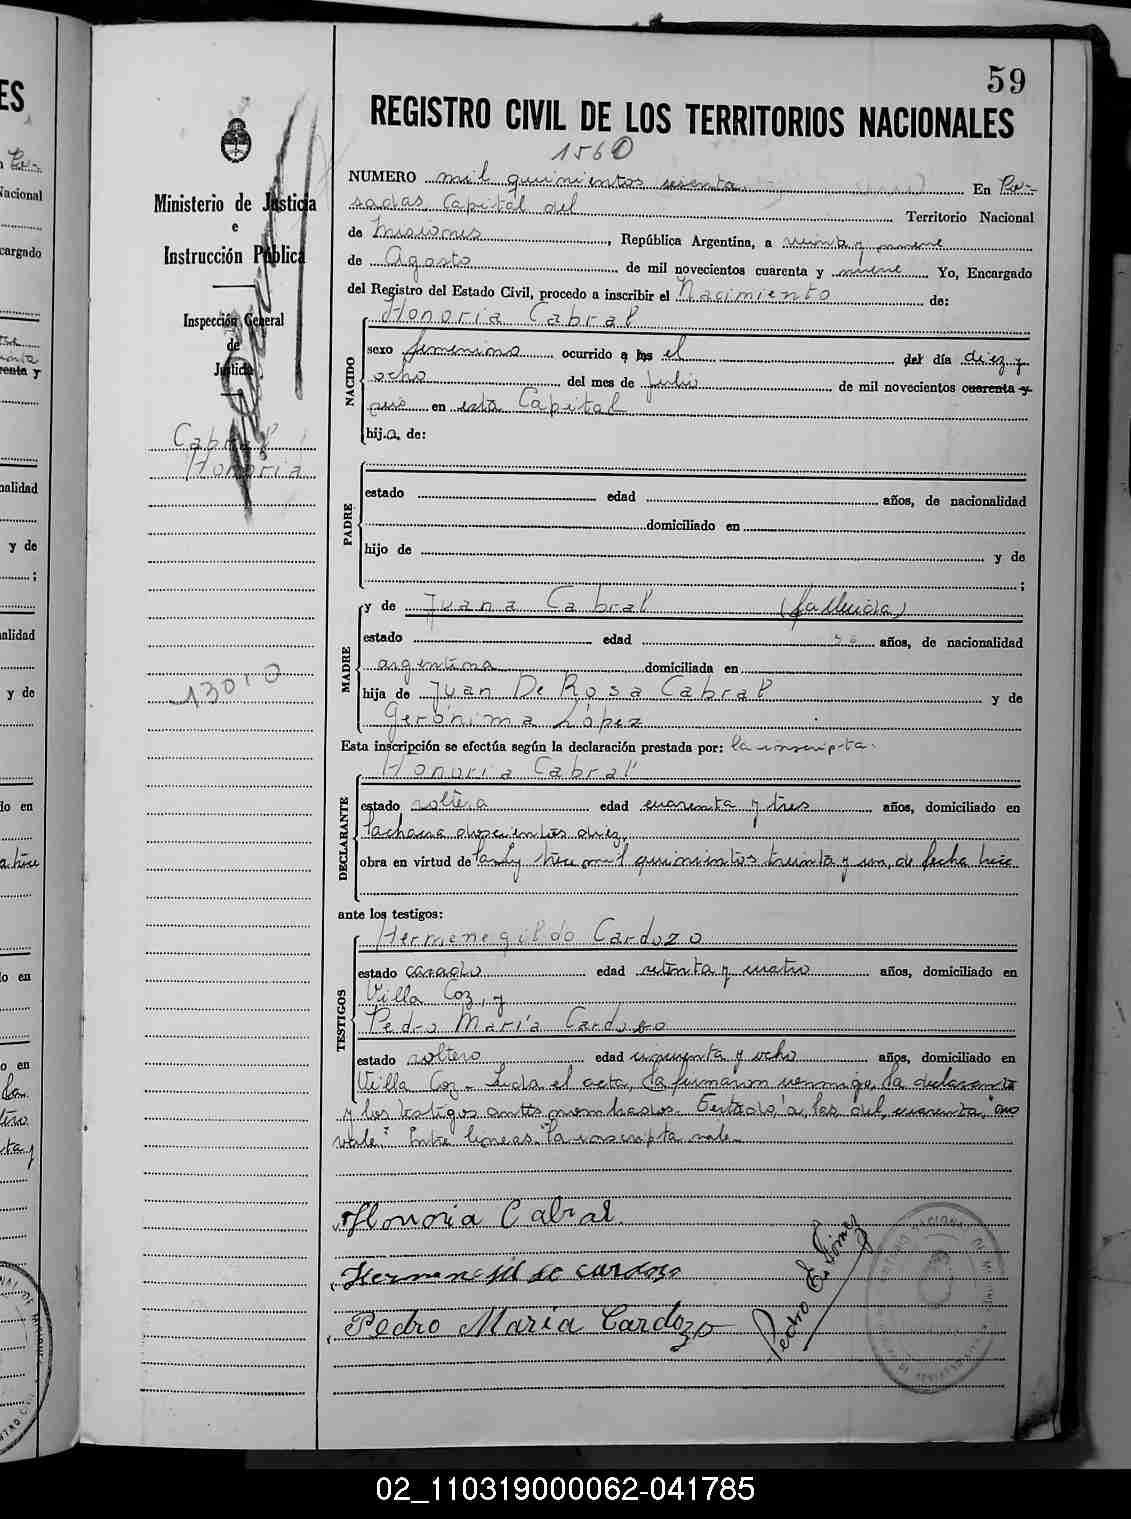 59
REGISTRO CIVIL DE LOS TERRITORIOS NACIONALES
1560
NUMERO mil quinientos sesenta En Po-
sadas, Capital del Territorio Nacional
de Misiones, República Argentina, a veinte y nueve
de Agosto de mil novecientos cuarenta y nueve Yo, Encargado
del Registro del Estado Civil, procedo a inscribir el Nacimiento de:
Honoria Cabral
NACIDO
sexo femenino ocurrido a las el del día diez y
ocho del mes de julio de mil novecientos cuarenta y
seis en esta Capital
hija de:
PADRE
estado edad años, de nacionalidad
domiciliado en
hijo de y de
;
MADRE
y de Juana Cabral (fallecida)
estado edad años, de nacionalidad
argentina domiciliada en
hija de Juan De Rosa Cabral y de
Gerónima López
Esta inscripción se efectúa según la declaración prestada por: la inscripta.
Honoria Cabral
DECLARANTE
estado soltera edad cuarenta y tres años, domiciliado en
Ayacucho doscientos diez,
obra en virtud de ley trece mil quinientos treinta y uno, de fecha trece
ante los testigos:
TESTIGOS
Hermenegildo Cardozo
estado casado edad setenta y cuatro años, domiciliado en
Villa Coz, y
Pedro María Cardozo
estado soltero edad cincuenta y ocho años, domiciliado en
Villa Coz.- Leída el acta, la firmaron conmigo, la declarante
y los testigos antes nombrados. Testado "a, las del, cuarenta, "no
vale". Entre líneas "la inscripta vale.
Honoria Cabral
Hermenegildo Cardozo
Pedro María Cardozo
Pedro E. Gómez
Ministerio de Justicia
e
Instrucción Pública
Inspección General
de
Justicia
Cabral
Honoria
13010
02_110319000062-041785